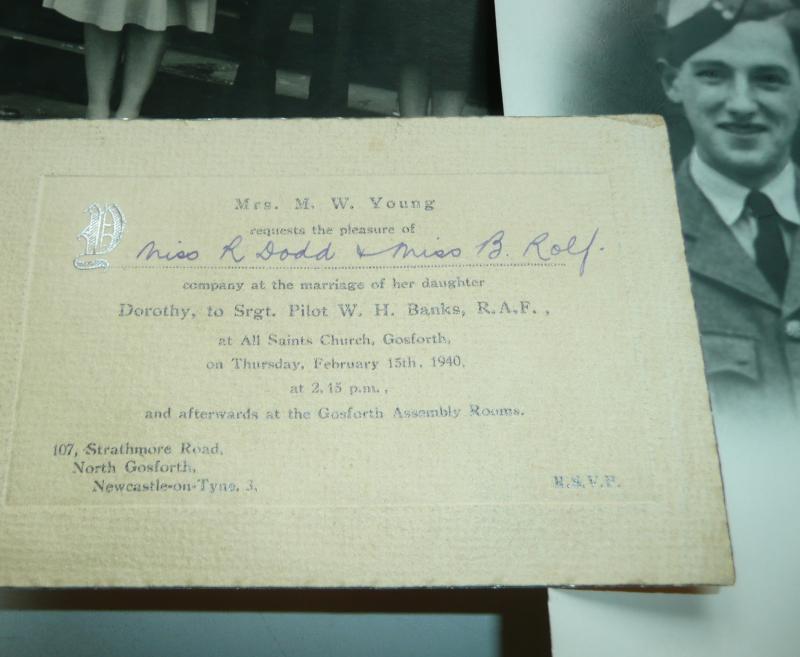 Mrs. M. W. Young
requests the pleasure of
Miss R Dodd & Miss B. Rolf.
company at the marriage of her daughter
Dorothy, to Srgt. Pilot W. H. Banks, R.A.F.,
at All Saints Church, Gosforth,
on Thursday, February 15th, 1940,
at 2.15 p.m.,
and afterwards at the Gosforth Assembly Rooms.
107, Strathmore Road,
North Gosforth,
Newcastle-on-Tyne, 3.
R.S.V.P.